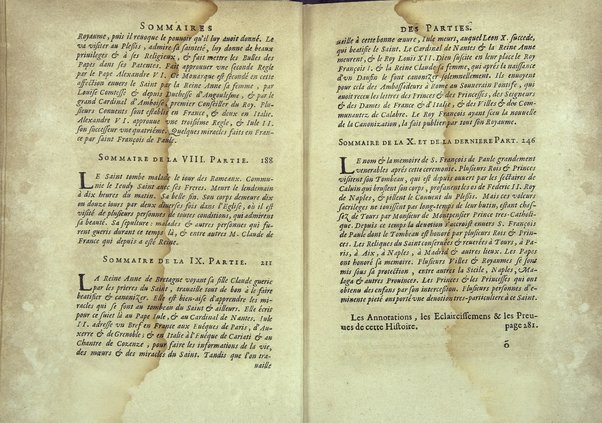 SOMMAIRES
Royaume, puis il revoque le pouvoir qu'il luy avoit donné. Le
va visiter au Plessis, admire sa sainteté, luy donne de beaux
privileges & à ses Religieux, & fait mettre les Bulles des
Papes dans ses Patentes. Fait approuver une seconde Regle
par le Pape Alexandre VI. Ce Monarque est secondé en cette
affection envers le Saint par la Reine Anne sa femme, par
Louise Comtesse & depuis Duchesse d'Angoulesme, & par le
grand Cardinal d'Amboise, premier Conseiller du Roy. Plu-
sieurs Convents sont establis en France, & deux en Italie.
Alexandre VI. approuve une troisiéme Regle, & Iule II.
son successeur une quatriéme. Quelques miracles faits en Fran-
ce par saint François de Paule.
SOMMAIRE DE LA VIII. PARTIE. 188
LE Saint tombe malade le iour des Rameaux. Commu-
nie le Ieudy Saint avec ses Freres. Meurt le lendemain
à dix heures du matin. Sa belle fin. Son corps demeure dix
ou douze iours par deux diverses fois dans l'Eglise, où il est
visité de plusieurs personnes de toutes conditions, qui admirent
sa beauté. Sa sepulture: malades & autres personnes qui fu-
rent gueris durant ce temps là, & entre autres M. Claude de
France qui depuis a esté Reine.
SOMMAIRE DE LA IX. PARTIE. 211
LA Reine Anne de Bretagne voyant sa fille Claude guerie
par les prieres du Saint, travaille tout de bon à le faire
beatifier & canonizer. Elle est bien-aise d'apprendre les mira-
cles qui se font au tombeau du Saint & ailleurs. Elle écrit
pour ce sujet là au Pape Iule, & au Cardinal de Nantes. Iule
II. adresse un Bref en France aux Euéques de Paris, d'Au-
xerre & de Grenoble; & en Italie à l'Euéque de Cariati & au
Chantre de Cozenze, pour faire les informations de la vie,
des mœurs & des miracles du Saint. Tandis que l'on tra-
vaille
DES PARTIES.
vaille à cette bonne œuvre, Iule meurt, auquel Leon X. succede,
qui beatifie le Saint. Le Cardinal de Nantes & la Reine Anne
meurent, & le Roy Louis XII. Dieu suscite en leur place le Roy
François I. & la Reine Claude sa femme, qui aprés la naissance
d'un Daufin le font canonizer solemnellement. Ils envoyent
pour cela des Ambassadeurs à Rome au Souverain Pontife, qui
avoit receu les lettres des Princes & des Princesses, des Seigneurs
& des Dames de France & d'Italie, & des Villes & des Com-
munautez de Calabre. Le Roy François ayant sceu la nouvelle
de la Canonization, la fait publier par tout son Royaume.
SOMMAIRE DE LA X. ET DE LA DERNIERE PART. 246
LE nom & la memoire de S. François de Paule grandement
venerables aprés cette ceremonie. Plusieurs Rois & Princes
visitent son Tombeau, qui est depuis ouvert par les sectaires de
Caluin qui bruslent son corps, profanent les os de Federic II. Roy
de Naples, & pillent le Convent du Plessis. Mais ces voleurs
sacrileges ne iouissent pas long-temps de leur butin, estant chas-
sez de Tours par Monsieur de Montpensier Prince tres-Catholi-
que. Depuis ce temps la devotion s'accroist envers S. François
de Paule dont le Tombeau est honoré par plusieurs Rois & Prin-
ces. Les Reliques du Saint conservées & reverées à Tours, à Pa-
ris, à Aix, à Naples, à Madrid & autres lieux. Les Papes
ont honoré sa memoire. Plusieurs Villes & Royaumes se sont
mis sous sa protection, entre autres la Sicile, Naples, Ma-
laga & autres Provinces. Les Princes & les Princesses qui ont
obtenu des enfans par son intercession. Plusieurs personnes d'e-
minente pieté ont porté une devotion tres-particuliere à ce Saint.
Les Annotations, les Eclaircissemens & les Preu-
ues de cette Histoire. page 281.
õ